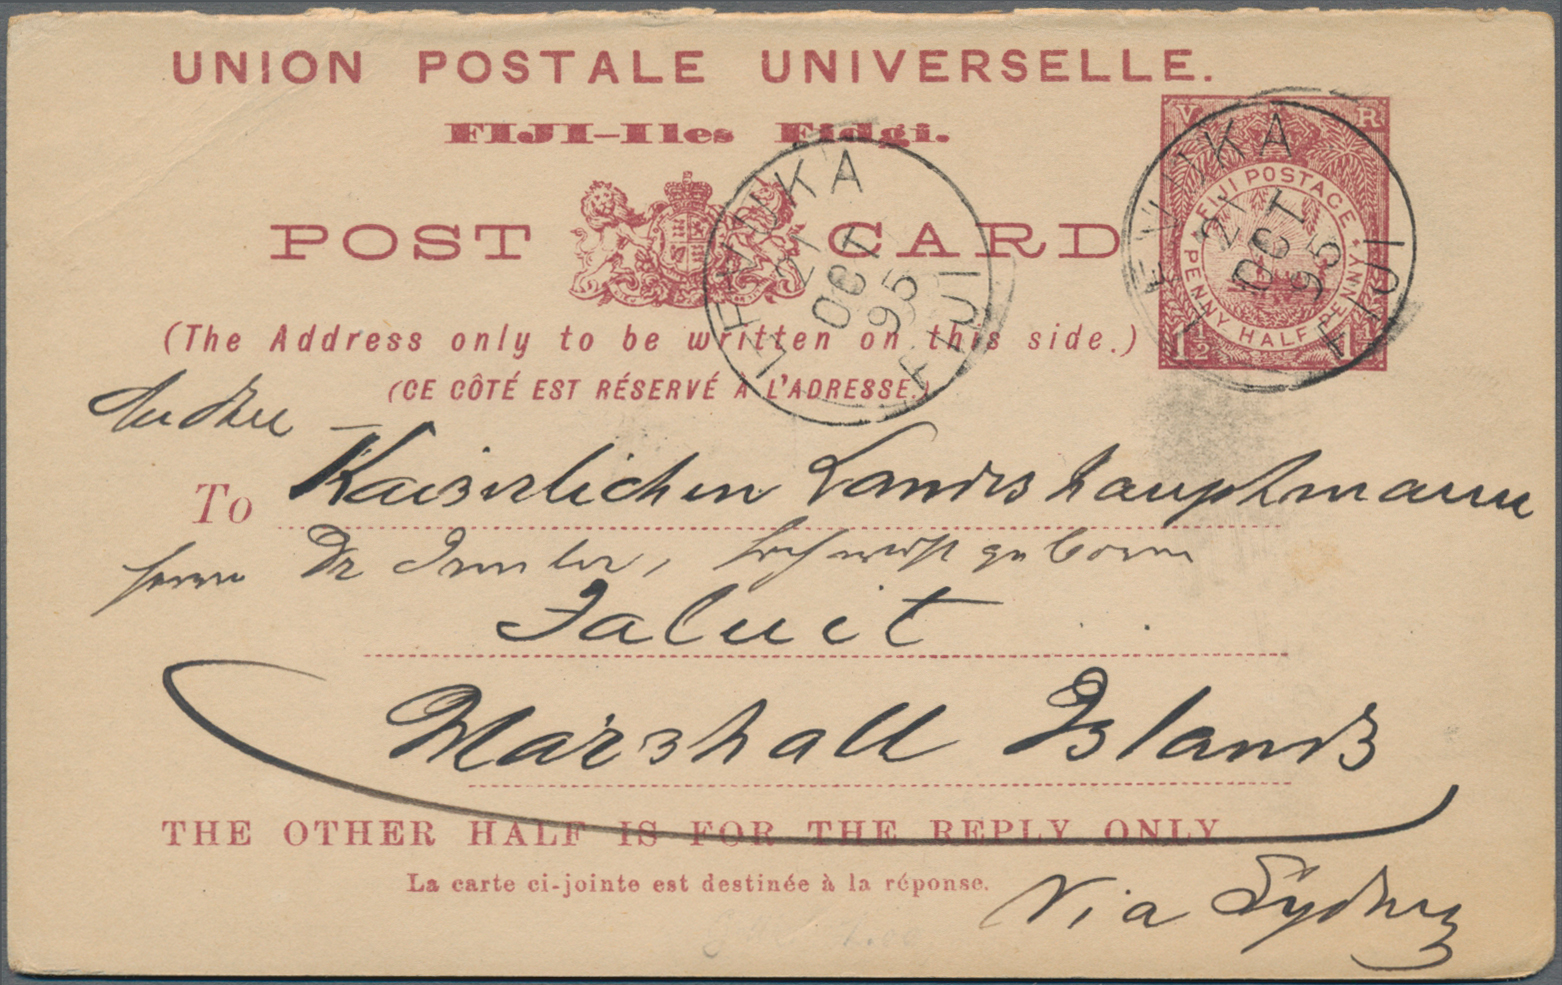 UNION POSTALE UNIVERSELLE.
FIJI–Iles Fidgi.
POST CARD
LEVUKA
21
OCT
95
FIJI
V R
FIJI POSTAGE
PENNY HALF PENNY
1½ 1½
LEVUKA
21
OCT
95
FIJI
(The Address only to be written on this side.)
(CE CÔTÉ EST RÉSERVÉ À L'ADRESSE.)
An den
To Kaiserlichen Landeshauptmann
Herrn Dr Irmler, Hochwohlgeboren
Jaluit
Marshall Islands
THE OTHER HALF IS FOR THE REPLY ONLY
La carte ci-jointe est destinée à la réponse.
Via Sydney